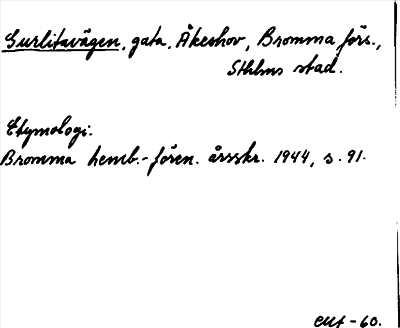 Gurlitavägen, gata, Åkeshov, Bromma förs.,
Sthlms stad.
Etymologi.
Bromma hemb.-fören. årsskr. 1944, s. 91.
-60.